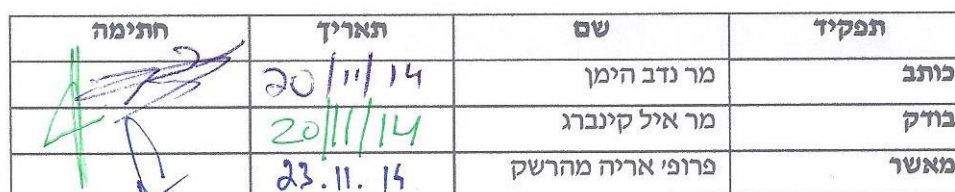 תפקיד שם תאריך חתימה
כותב מר נדב הימן 20/11/14
בודק מר איל קינברג 20/11/14
מאשר פרופי אריה מהרשק 23.11.14